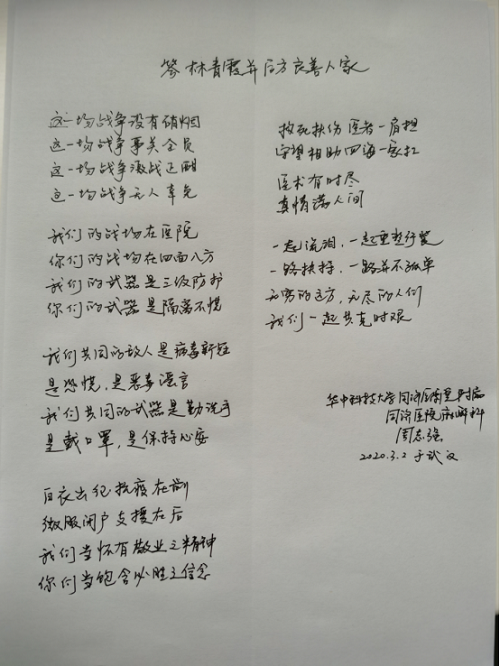 答林青霞并后方良善人家
这一场战争没有硝烟
这一场战争事关全员
这一场战争激战正酣
这一场战争无人幸免
我们的战场在医院
你们的战场在四面八方
我们的武器是三级防护
你们的武器是隔离不慌
我们共同的敌人是病毒新冠
是恐慌，是恶毒谣言
我们共同的武器是勤洗手
是戴口罩，是保持心安
白衣出征抗疫在前
微服闭户支援在后
我们当怀有敬业之精神
你们当饱含必胜之信念
救死扶伤医者一肩担
守望相助四海一家扛
医术有时尽
真情满人间
一起流泪，一起重整行囊
一路扶持，一路并不孤单
无穷的远方，无尽的人们
我们一起共克时艰
华中科技大学同济医学院附属
同济医院麻醉科
周志强
2020.3.2 于武汉